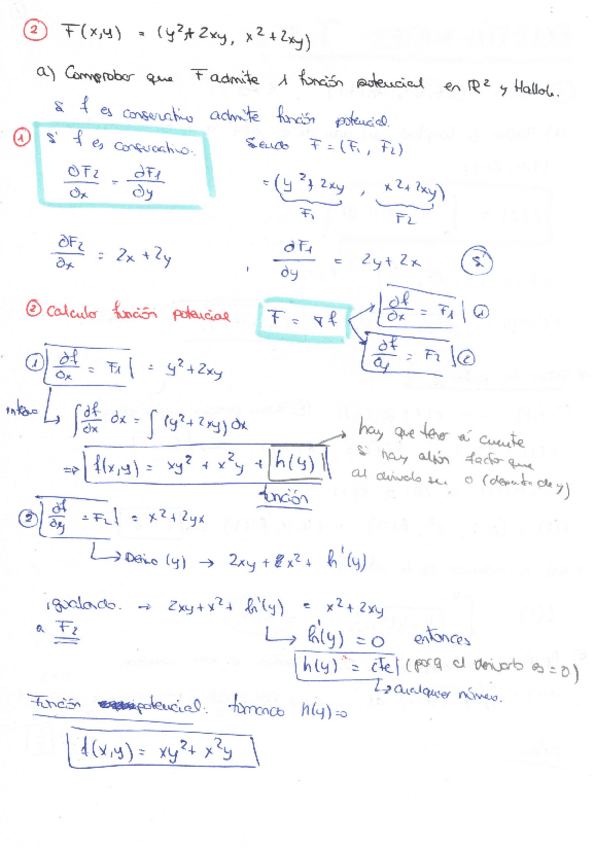 ② F(x,y) = (y²+2xy, x²+2xy)
a) Comprobar que F admite 1 función potencial en ℝ² y Hallala.
Si f es conservativo admite función potencial.
① Si f es conservativo. Siendo F = (F₁, F₂)
∂F₂/∂x = ∂F₁/∂y = (y²+2xy, x²+2xy)
F₁ F₂
∂F₂/∂x = 2x+2y, ∂F₁/∂y = 2y+2x Sí
② Calculo función potencial F = ∇f ∂f/∂x = F₁ ①
∂f/∂y = F₂ ②
① ∂f/∂x = F₁ = y²+2xy
integro ∫ ∂f/∂x dx = ∫ (y²+2xy) dx
⇒ f(x,y) = xy² + x²y + h(y)
función
hay que tener en cuenta
si hay algún factor que
al derivarlo sea 0 (dependa de y)
② ∂f/∂y = F₂ = x²+2yx
Derivo (y) → 2xy + x² + h'(y)
igualando → 2xy+x²+h'(y) = x²+2xy
a F₂
h'(y) = 0 entonces
h(y) = cte (porq al derivarlo es = 0)
cualquier número.
Función potencial. tomando h(y)=0
f(x,y) = xy²+x²y